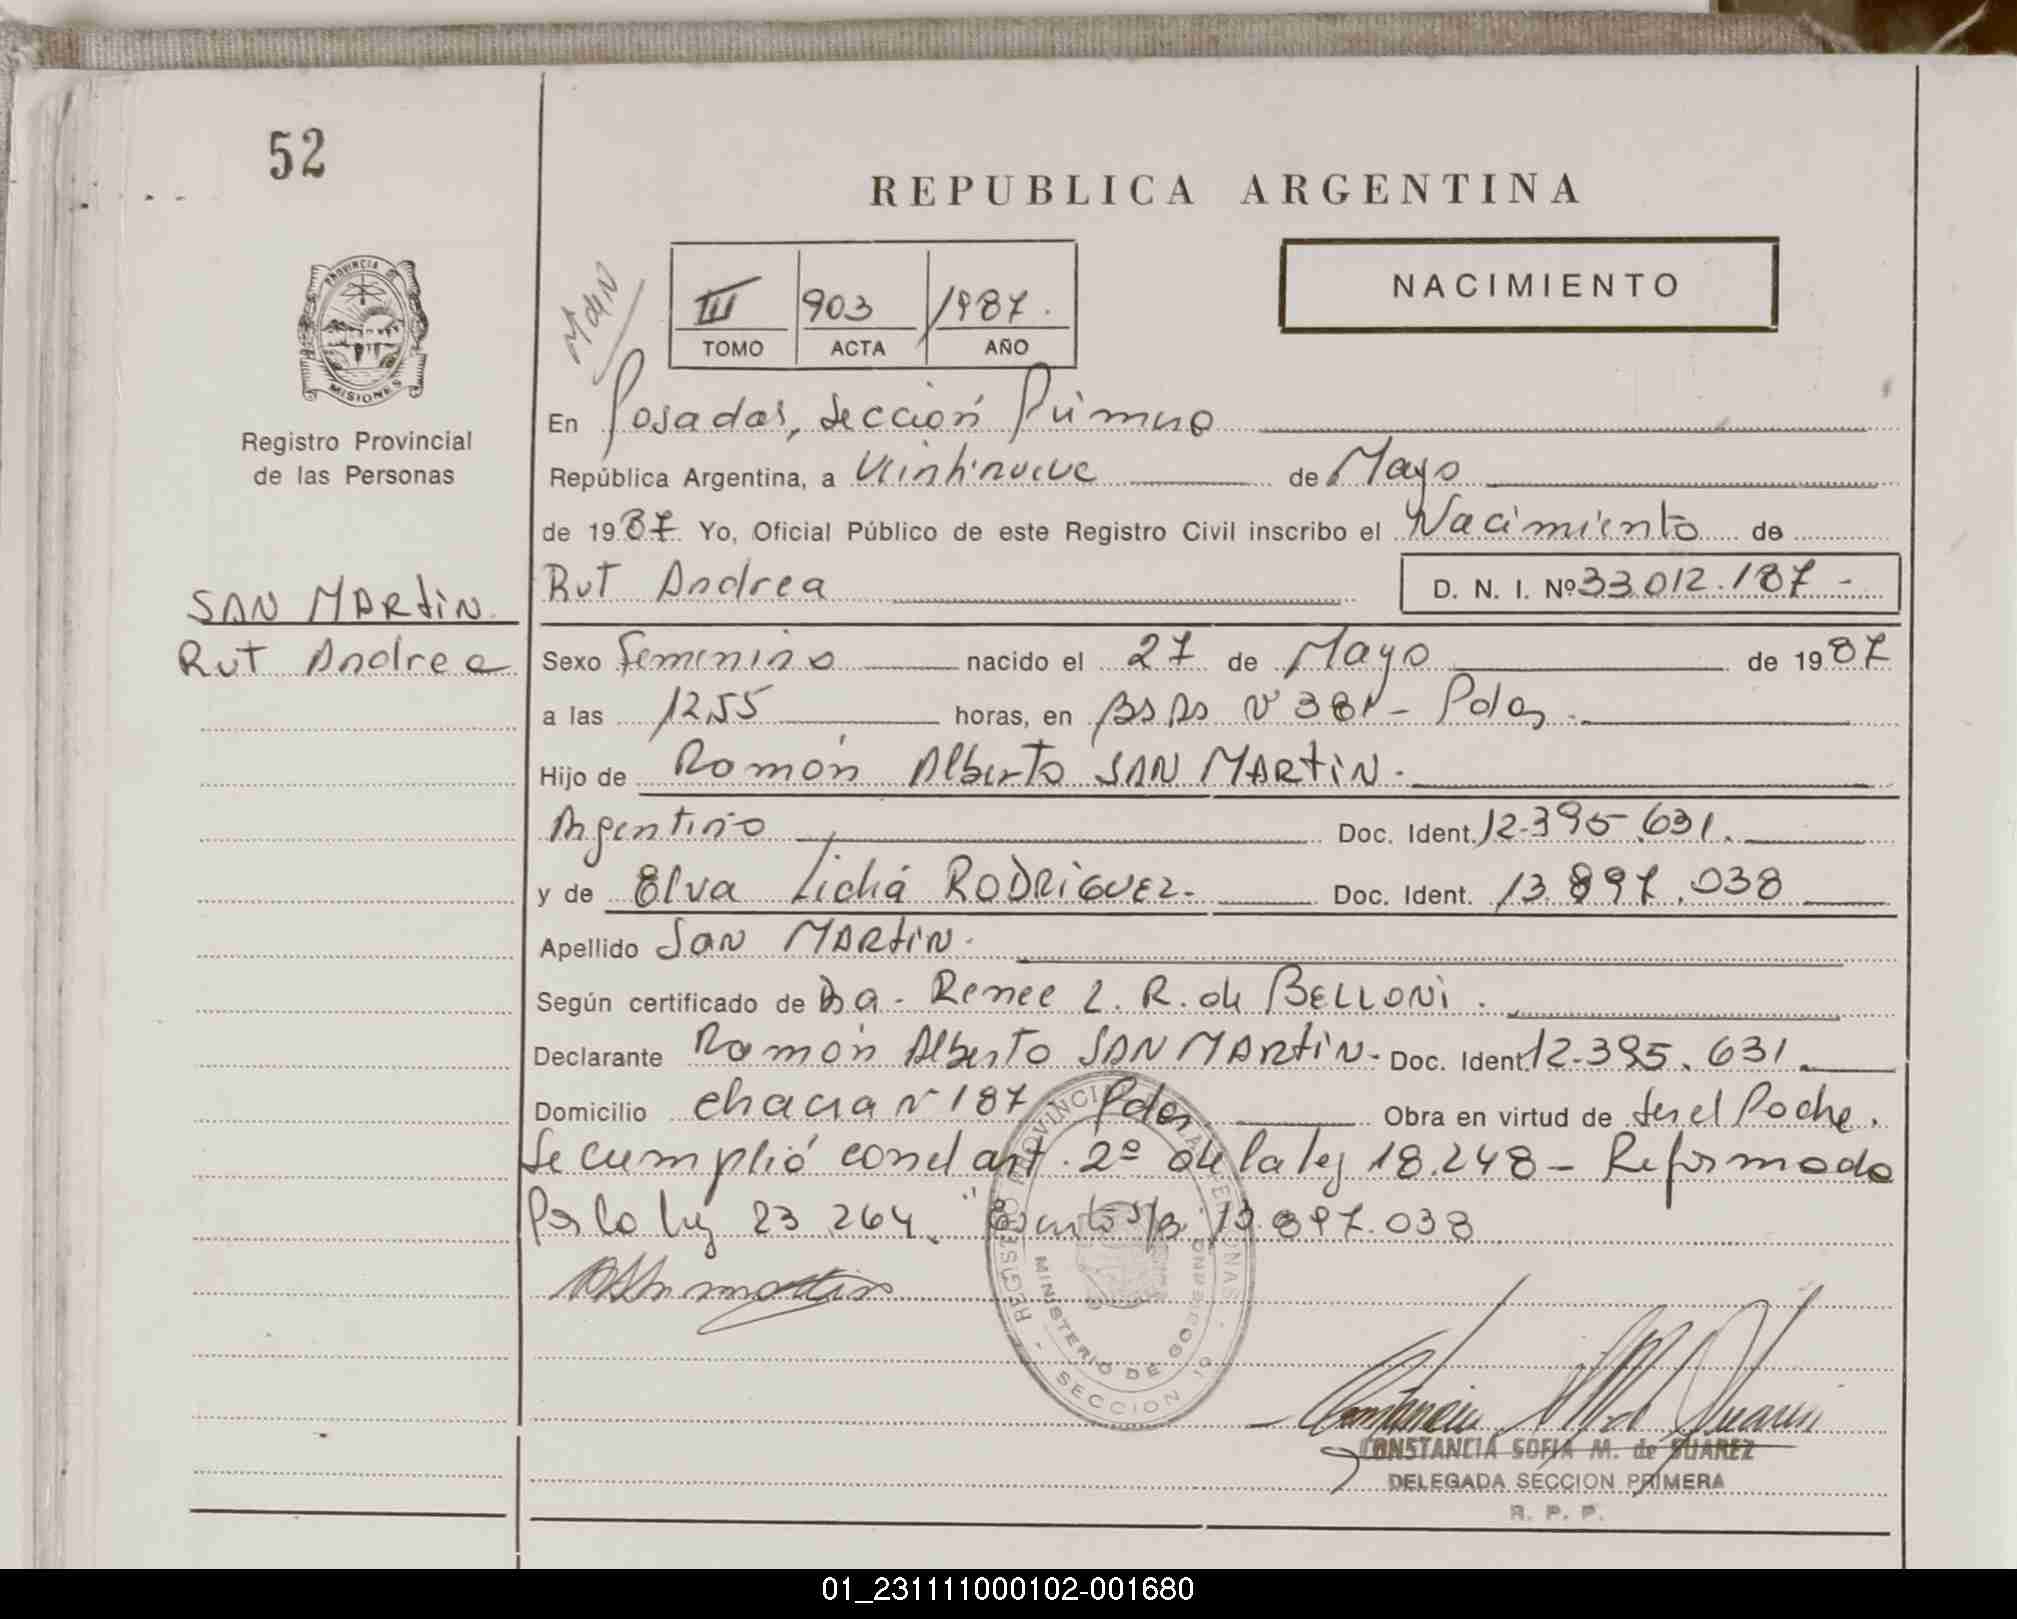 52
REPUBLICA ARGENTINA
NACIMIENTO
III 903 1987.
TOMO ACTA AÑO
PROVINCIA DE
MISIONES
Registro Provincial
de las Personas
SAN MARTIN.
Rut Andrea
En Posadas, Sección Primera
República Argentina, a Veintinueve de Mayo
de 1987 Yo, Oficial Público de este Registro Civil inscribo el Nacimiento de
Rut Andrea D. N. I. Nº 33.012.187-
Sexo Femenino nacido el 27 de Mayo de 1987
a las 12,55 horas, en Bs As Nº 381 - Pdas.
Hijo de Ramón Alberto SAN MARTIN.
Argentino Doc. Ident. 12.395.631.
y de Elva Lidia RODRIGUEZ- Doc. Ident. 13.897.038
Apellido San MARTIN.
Según certificado de Dra. Renee L. R. de BELLONI.
Declarante Ramón Alberto SAN MARTIN- Doc. Ident. 12.395.631
Domicilio chacra Nº 187 Pdas Obra en virtud de ser el Padre.
Se cumplió con el art. 2º de la ley 18.248 - Reformado
Por la ley 23.264. 13.897.038
REGISTRO PROVINCIAL DE LAS PERSONAS
MINISTERIO DE GOBIERNO
SECCION 1º
CONSTANCIA SOFIA M. de SUAREZ
DELEGADA SECCION PRIMERA
R. P. P.
01_231111000102-001680